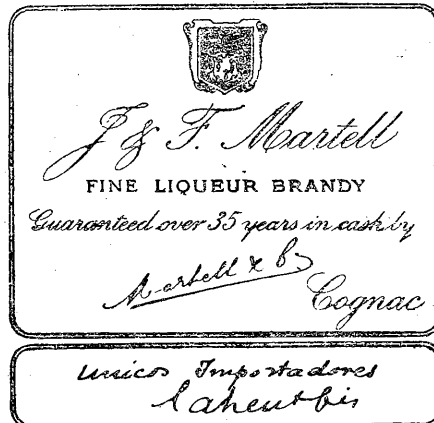 J & F. Martell
FINE LIQUEUR BRANDY
Guaranteed over 35 years in cask by
Martell & Co
Cognac
Unicos Importadores